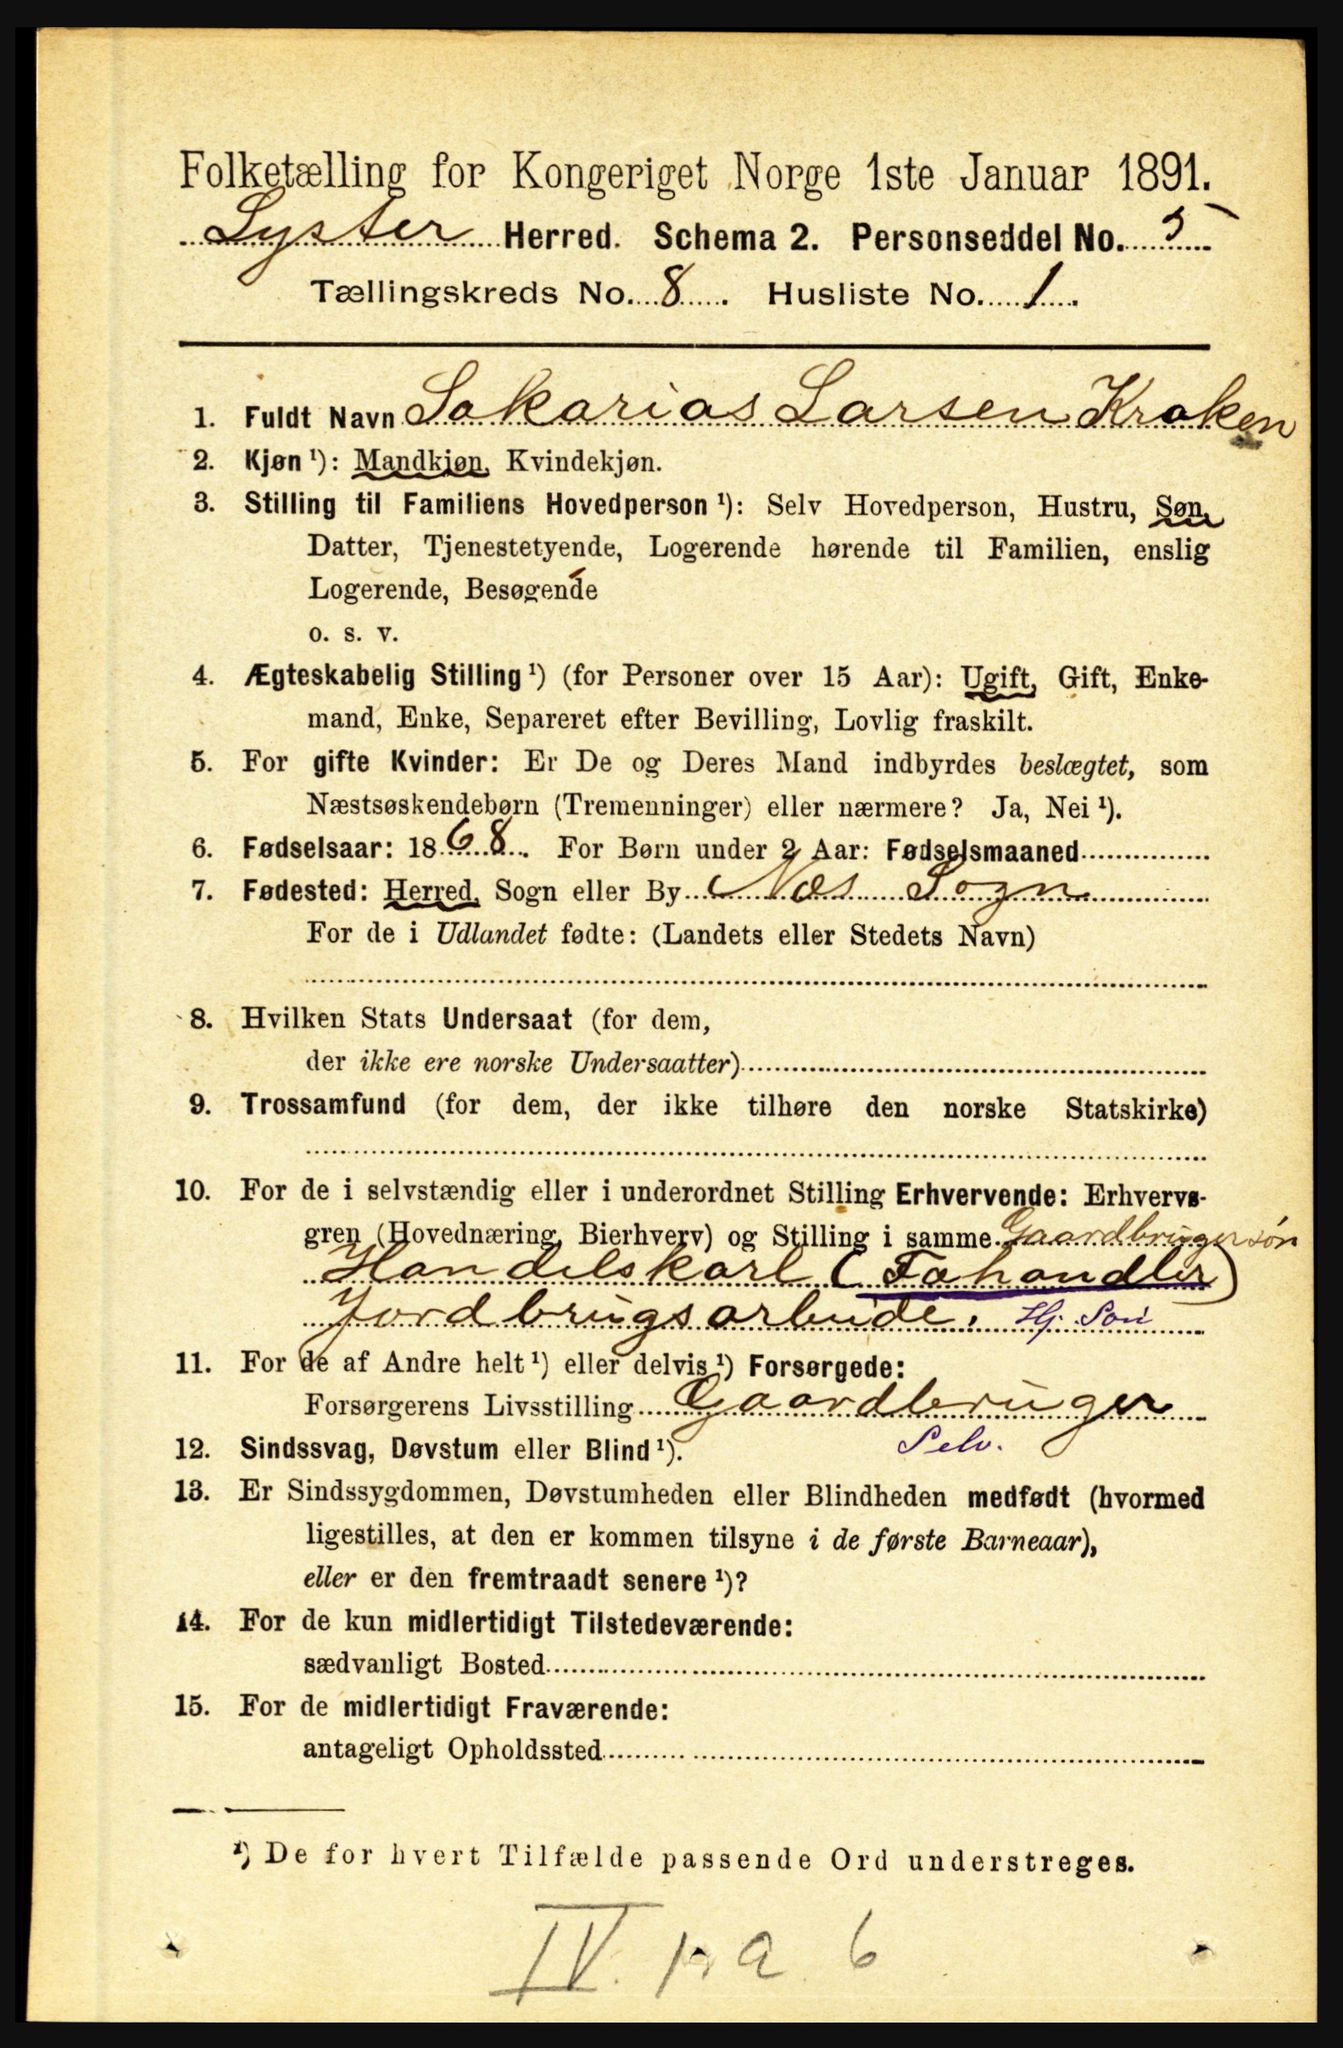 Folketælling for Kongeriget Norge 1ste Januar 1891.
Lyster Herred. Schema 2. Personseddel No. 5
Tællingskreds No. 8. Husliste No. 1.
1. Fuldt Navn Sakarias Larsen Kroken
2. Kjøn ¹): Mandkjøn, Kvindekjøn.
3. Stilling til Familiens Hovedperson ¹): Selv Hovedperson, Hustru, Søn,
Datter, Tjenestetyende, Logerende hørende til Familien, enslig
Logerende, Besøgende
o. s. v.
4. Ægteskabelig Stilling ¹) (for Personer over 15 Aar): Ugift, Gift, Enke-
mand, Enke, Separeret efter Bevilling, Lovlig fraskilt.
5. For gifte Kvinder: Er De og Deres Mand indbyrdes beslægtet, som
Næstsøskendebørn (Tremenninger) eller nærmere? Ja, Nei ¹).
6. Fødselsaar: 1868. For Børn under 2 Aar: Fødselsmaaned
7. Fødested: Herred, Sogn eller By Næs Sogn
For de i Udlandet fødte: (Landets eller Stedets Navn)
8. Hvilken Stats Undersaat (for dem,
der ikke ere norske Undersaatter)
9. Trossamfund (for dem, der ikke tilhøre den norske Statskirke)
10. For de i selvstændig eller i underordnet Stilling Erhvervende: Erhvervs-
gren (Hovednæring, Bierhverv) og Stilling i samme Gaardbrugersøn
Handelskarl (Fahandler)
Jordbrugsarbeide. Hj. Søn
11. For de af Andre helt ¹) eller delvis ¹) Forsørgede:
Forsørgerens Livsstilling Gaardbruger
12. Sindssvag, Døvstum eller Blind ¹). Selv.
13. Er Sindssygdommen, Døvstumheden eller Blindheden medfødt (hvormed
ligestilles, at den er kommen tilsyne i de første Barneaar),
eller er den fremtraadt senere ¹)?
14. For de kun midlertidigt Tilstedeværende:
sædvanligt Bosted
15. For de midlertidigt Fraværende:
antageligt Opholdssted
¹) De for hvert Tilfælde passende Ord understreges.
IV. 1. a. 6